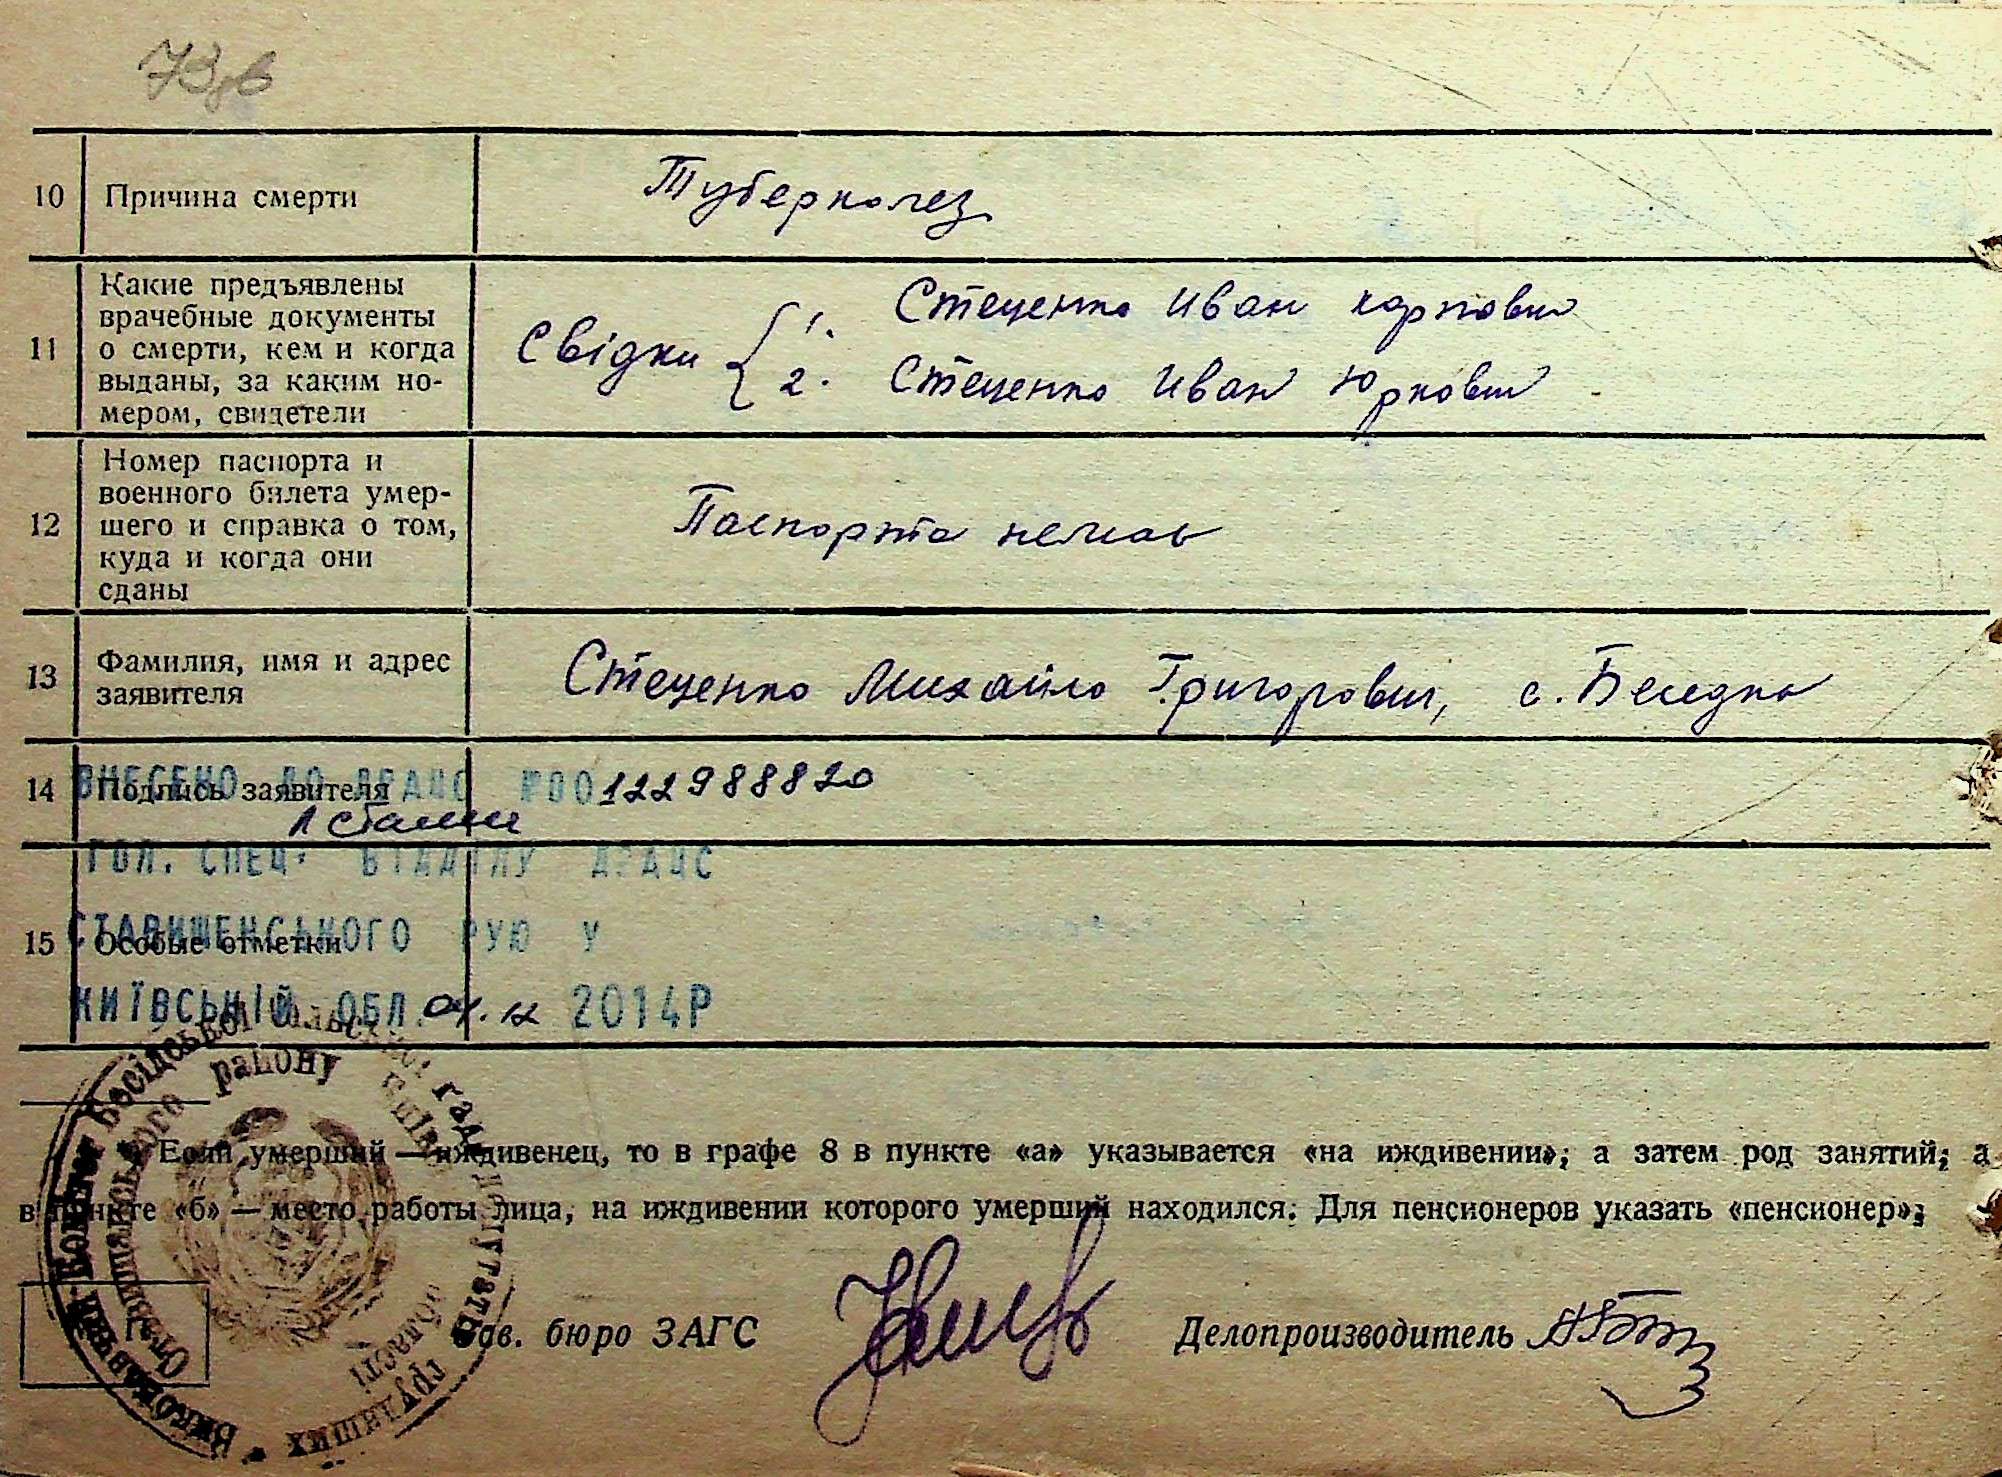 73 зв
10 Причина смерти Туберколез
11 Какие предъявлены
врачебные документы
о смерти, кем и когда
выданы, за каким но-
мером, свидетели
Свідки { 1. Стеценко Иван Карпович
2. Стеценко Иван Юркович
12 Номер паспорта и
военного билета умер-
шего и справка о том,
куда и когда они
сданы
Паспорта немає
13 Фамилия, имя и адрес
заявителя
Стеценко Михайло Григорович, с. Беседка
14 Подпись заявителя
ВНЕСЕНО ДО ДРАЦС №00122988820
ГОЛ. СПЕЦ. ВІДДІЛУ ДРАЦС
15 Особые отметки
СТАВИЩЕНСЬКОГО РУЮ У
КИЇВСЬКІЙ ОБЛ. 04.12 2014Р
Виконавчий Комітет Бесідської сільської ради депутатів трудящих
Ставищанського району Київської області
Если умерший — иждивенец, то в графе 8 в пункте «а» указывается «на иждивении», а затем род занятий, а
в пункте «б» — место работы лица, на иждивении которого умерший находился. Для пенсионеров указать «пенсионер».
Зав. бюро ЗАГС Делопроизводитель